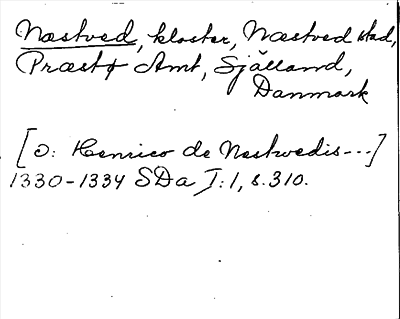 Næstved, kloster, Næstved stad,
Præstø Amt, Själland,
Danmark
[o: Henrico de Nestwedis---]
1330-1334 SDa I:1, s.310.